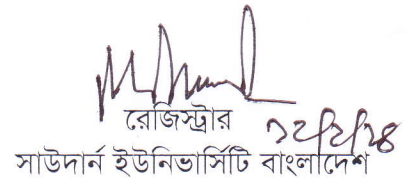 রেজিস্ট্রার
১২/২/২৪
সাউদার্ন ইউনিভার্সিটি বাংলাদেশ